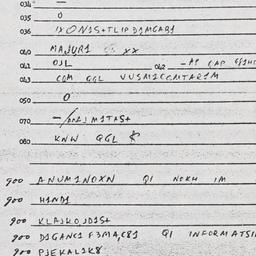 034 —
035 0
036 1XON1S+TLIP D1MGAB1
040 MAJUR1 XX
041 OJL 042 — AP CAP
043 COM GGL VUSM1CCMTAR1M
050 0
070 —/ONAJM1TAS+
080 KNW GGL
900 ANUM1NOXN QI NOKH IM
900 H1ND1
900 KLAJKOJD1S+
900 D1GANC1 F3MA,C81 QI INFORMATSI
900 PJEKAL1K8